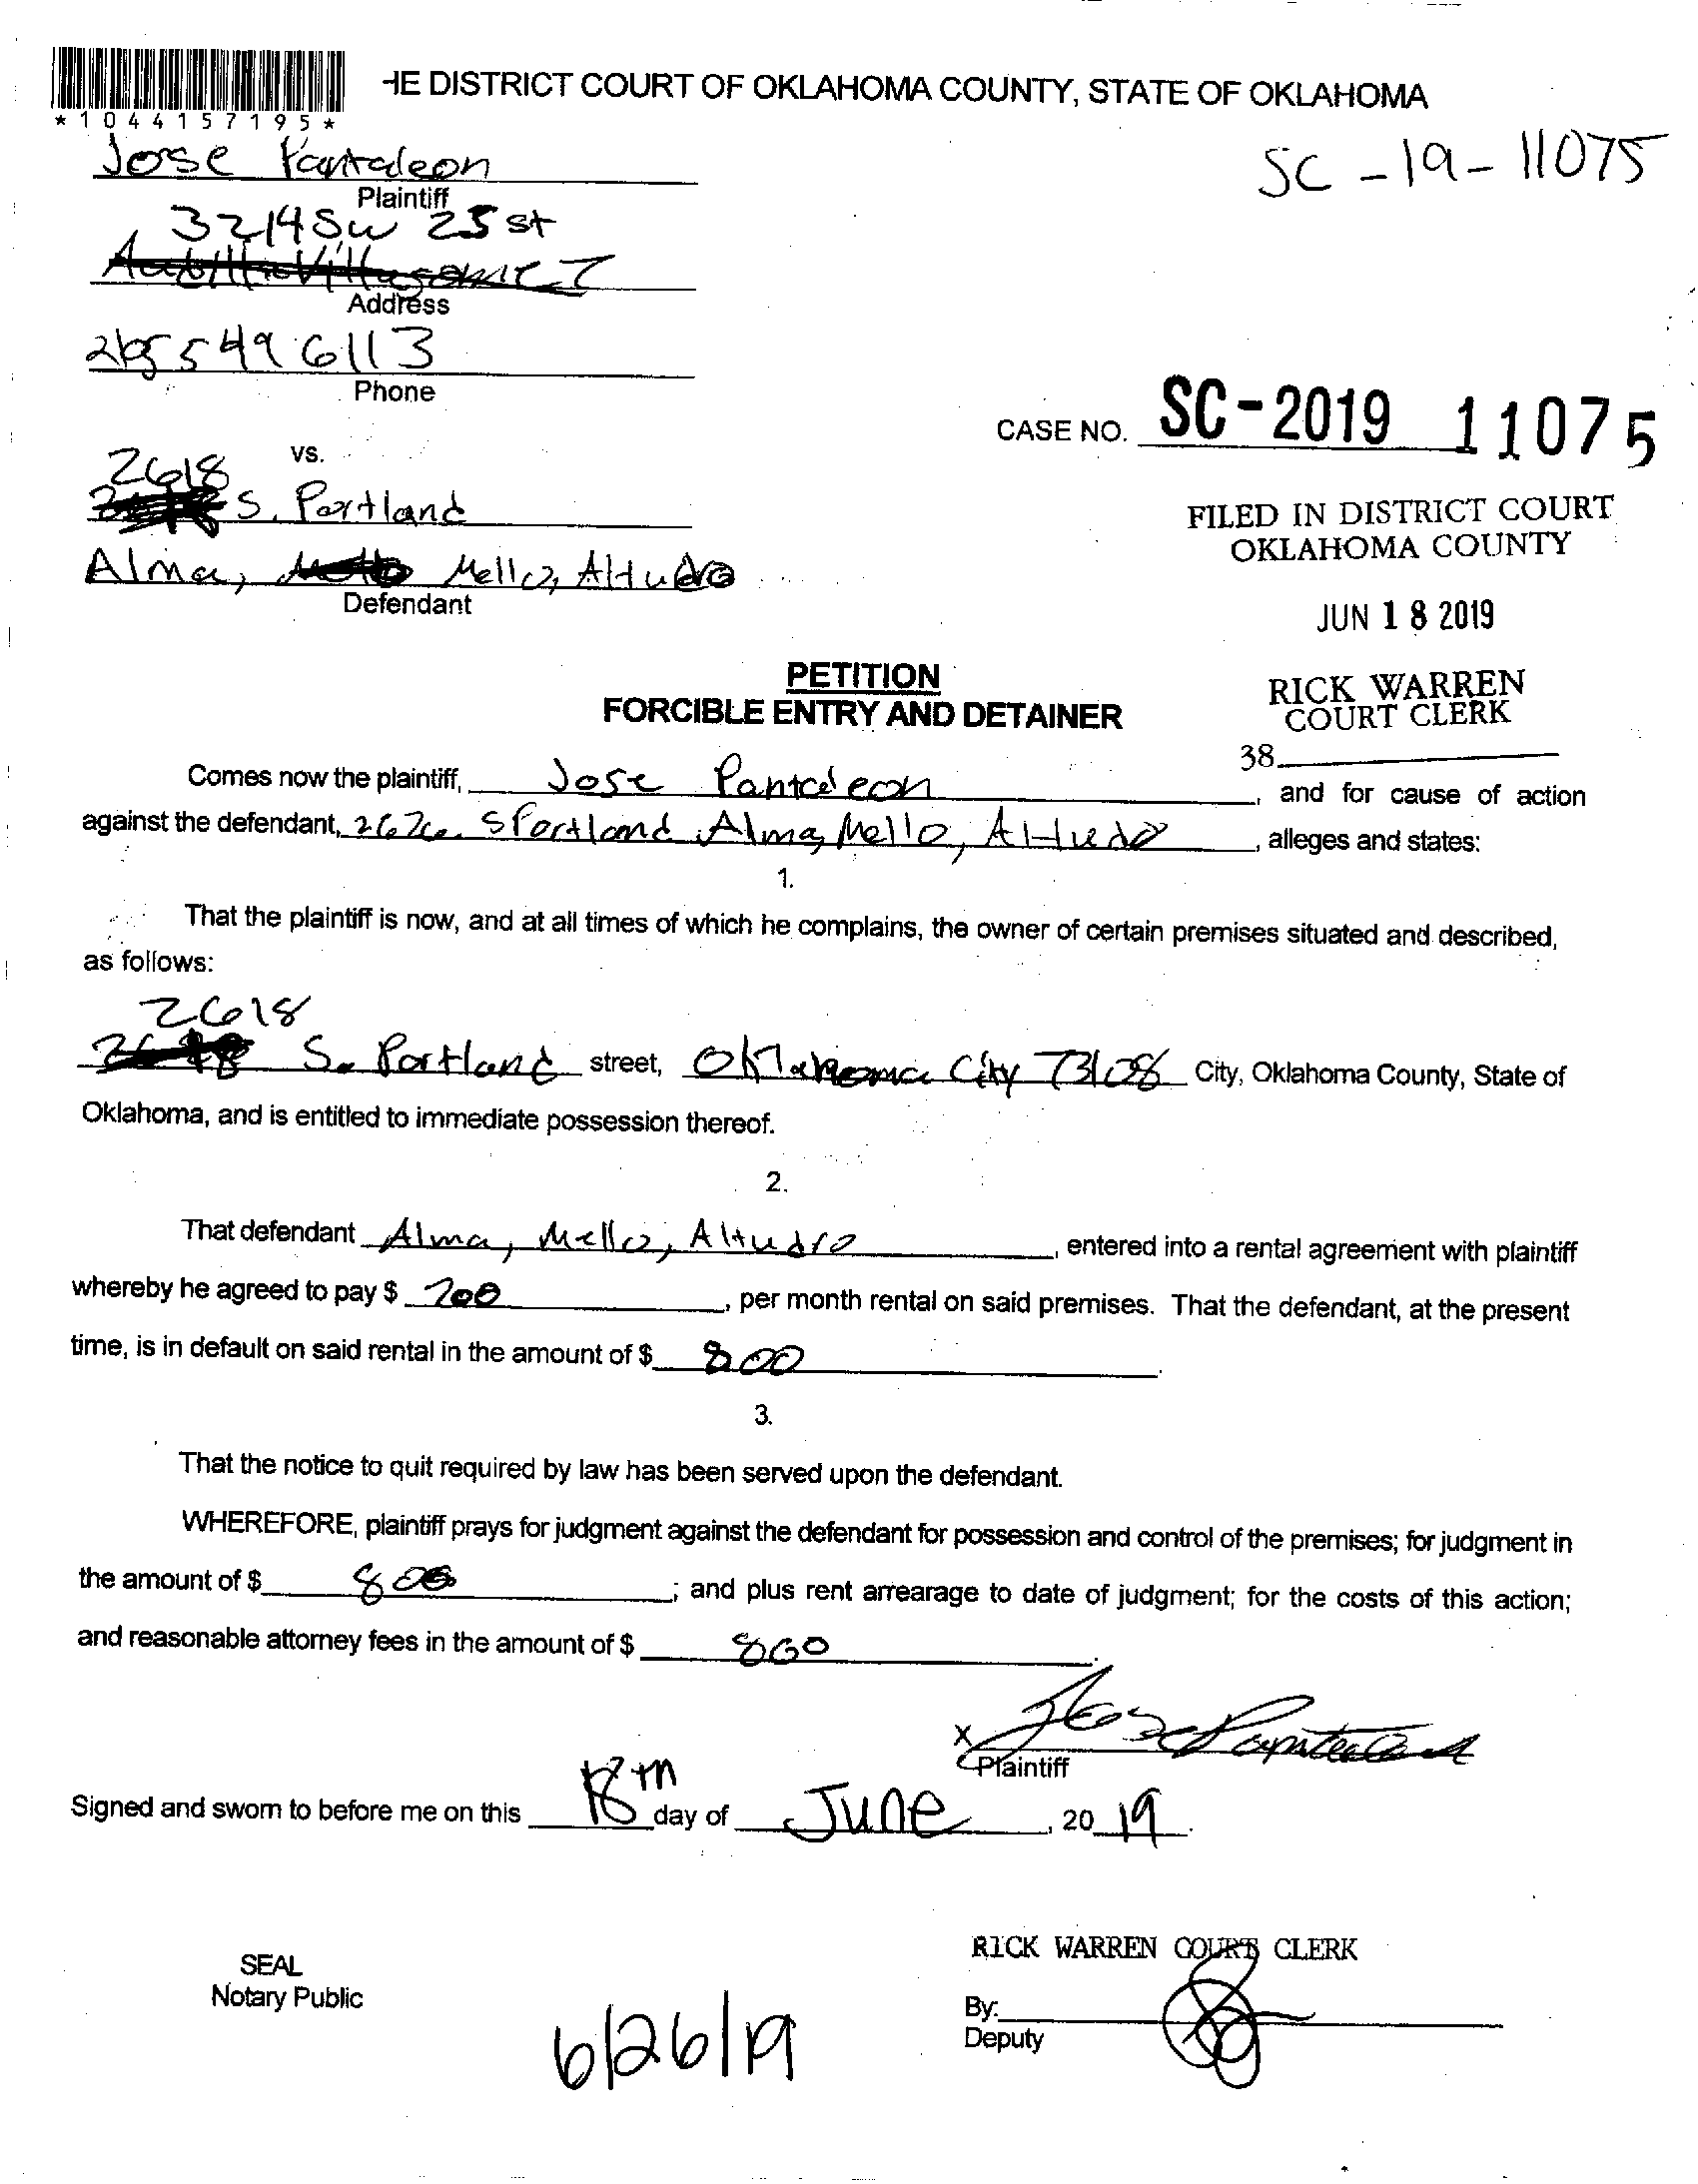 *1044157195*
HE DISTRICT COURT OF OKLAHOMA COUNTY, STATE OF OKLAHOMA
Jose Pantaleon
SC-19-11075
Plaintiff
3214 SW 25 st
Address
5496113
Phone
CASE NO. SC-2019 11075
vs.
2618
S. Portland
Alma, Mello, Altudro
Defendant
FILED IN DISTRICT COURT
OKLAHOMA COUNTY
JUN 18 2019
RICK WARREN
COURT CLERK
38
PETITION
FORCIBLE ENTRY AND DETAINER
Comes now the plaintiff, Jose Pantaleon, and for cause of action
against the defendant, S Portland Alma, Mello, Altudro, alleges and states:
1.
That the plaintiff is now, and at all times of which he complains, the owner of certain premises situated and described,
as follows:
2618
S. Portland street, Oklahoma City 73108 City, Oklahoma County, State of
Oklahoma, and is entitled to immediate possession thereof.
2.
That defendant Alma, Mello, Altudro, entered into a rental agreement with plaintiff
whereby he agreed to pay $ 700, per month rental on said premises. That the defendant, at the present
time, is in default on said rental in the amount of $ 800.
3.
That the notice to quit required by law has been served upon the defendant.
WHEREFORE, plaintiff prays for judgment against the defendant for possession and control of the premises; for judgment in
the amount of $ 800; and plus rent arrearage to date of judgment; for the costs of this action;
and reasonable attorney fees in the amount of $ 800.
x Jose Pantaleon
Plaintiff
Signed and sworn to before me on this 18th day of June, 2019.
RICK WARREN COURT CLERK
SEAL
Notary Public
By:
Deputy
6/26/19